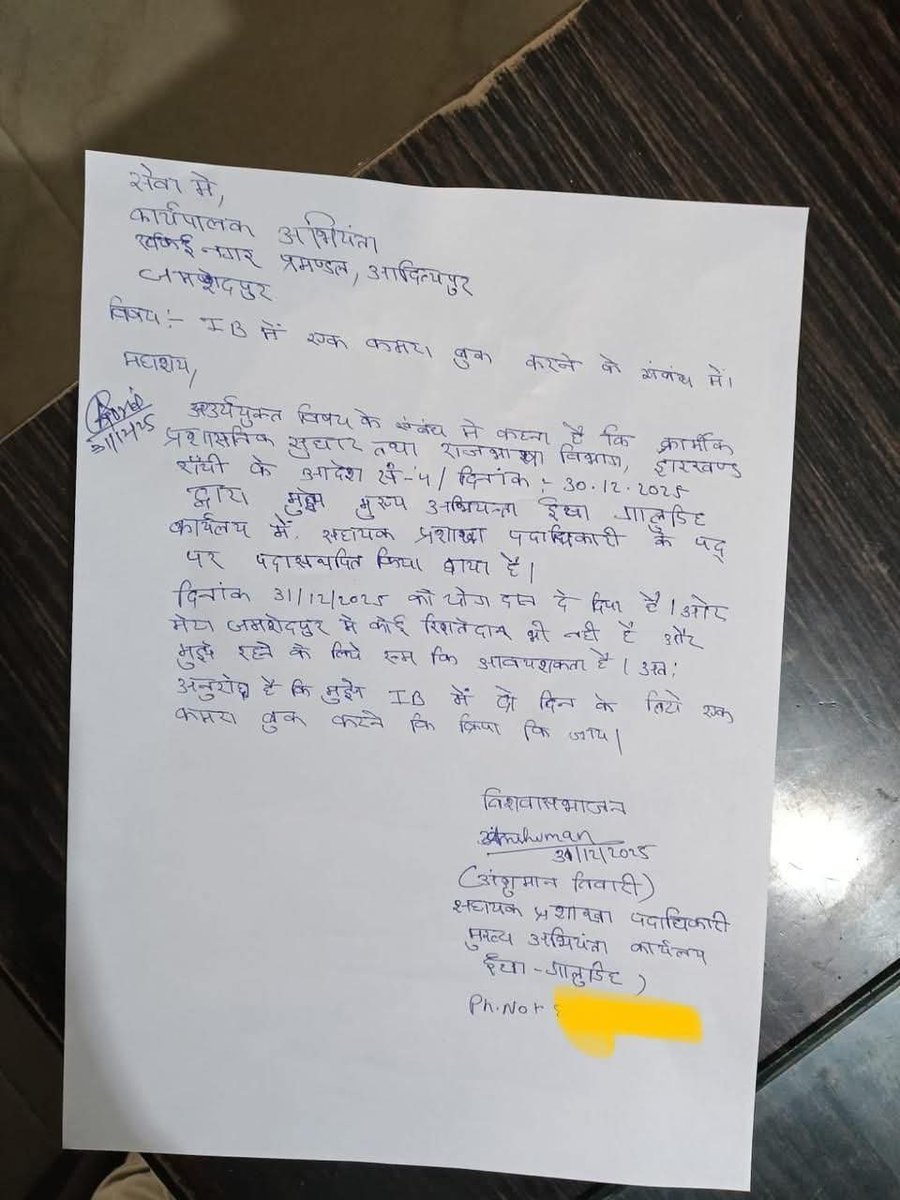 सेवा मे,
कार्यपालक अभियंता
नगर प्रमण्डल, आदित्यपुर
जमशेदपुर
विषय:- IB में एक कमरा बुक करने के संबंध में।
महाशय,
31/12/25
विषय के संबंध मे कहना है कि कार्मीक
प्रशासनिक सुधार तथा राजभाषा विभाग, झारखण्ड
राँची के आदेश सं-4/ दिनांक :- 30.12.2025
द्वारा मुझे मुख्य अभियन्ता ईचा गालुडिह
कार्यलय में, सहायक प्रशाखा पदाधिकारी के पद्
पर किया गया है।
दिनांक 31/12/2025 को योगदान दे दिया है। और
मेरा जमशेदपुर मे कोई रिशतेदार भी नही है और
मुझे रहने के लिये रूम कि आवयशकता है। अतः
अनुरोध है कि मुझे IB में दो दिन के लिये एक
कमरा बुक करने कि क्रिपा कि जाय।
विशवासभाजन
Anshuman
31/12/2025
(अंशुमान तिवारी)
सहायक प्रशाखा पदाधिकारी
मुख्य अभियंता कार्यलय
ईचा-गालुडिह)
Ph.No+